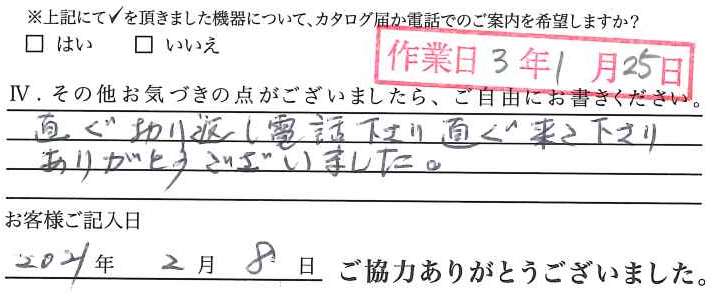 ※上記にて✓を頂きました機器について、カタログ届か電話でのご案内を希望しますか?
□ はい　□ いいえ
作業日 3年1月25日
Ⅳ．その他お気づきの点がございましたら、ご自由にお書きください。
直ぐ折り返し電話下さり直ぐ来て下さり
ありがとうございました。
お客様ご記入日
2021年 2月 8日 ご協力ありがとうございました。